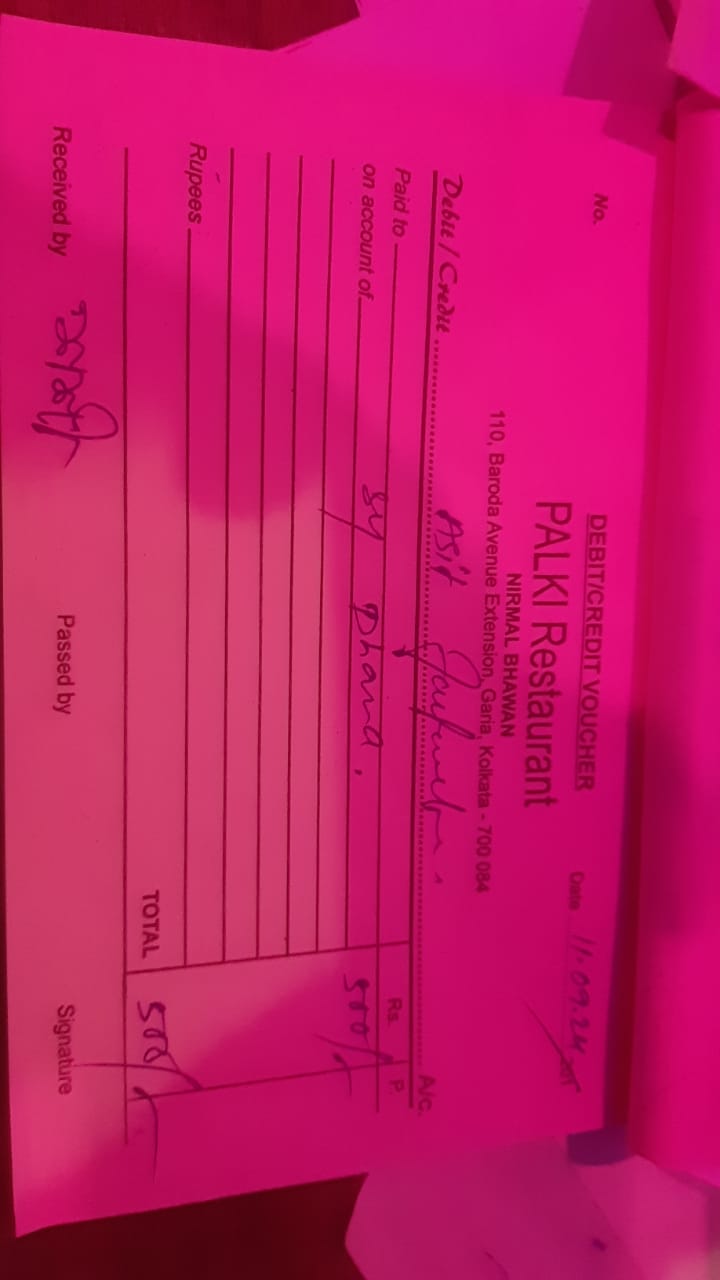 DEBIT/CREDIT VOUCHER
No.
Date 11.09.24
PALKI Restaurant
NIRMAL BHAWAN
110, Baroda Avenue Extension, Garia, Kolkata - 700 084
Debit / Credit Asit A/c.
Paid to Rs. P.
on account of Dhama. 500/-
Rupees
TOTAL 500/-
Received by Passed by Signature